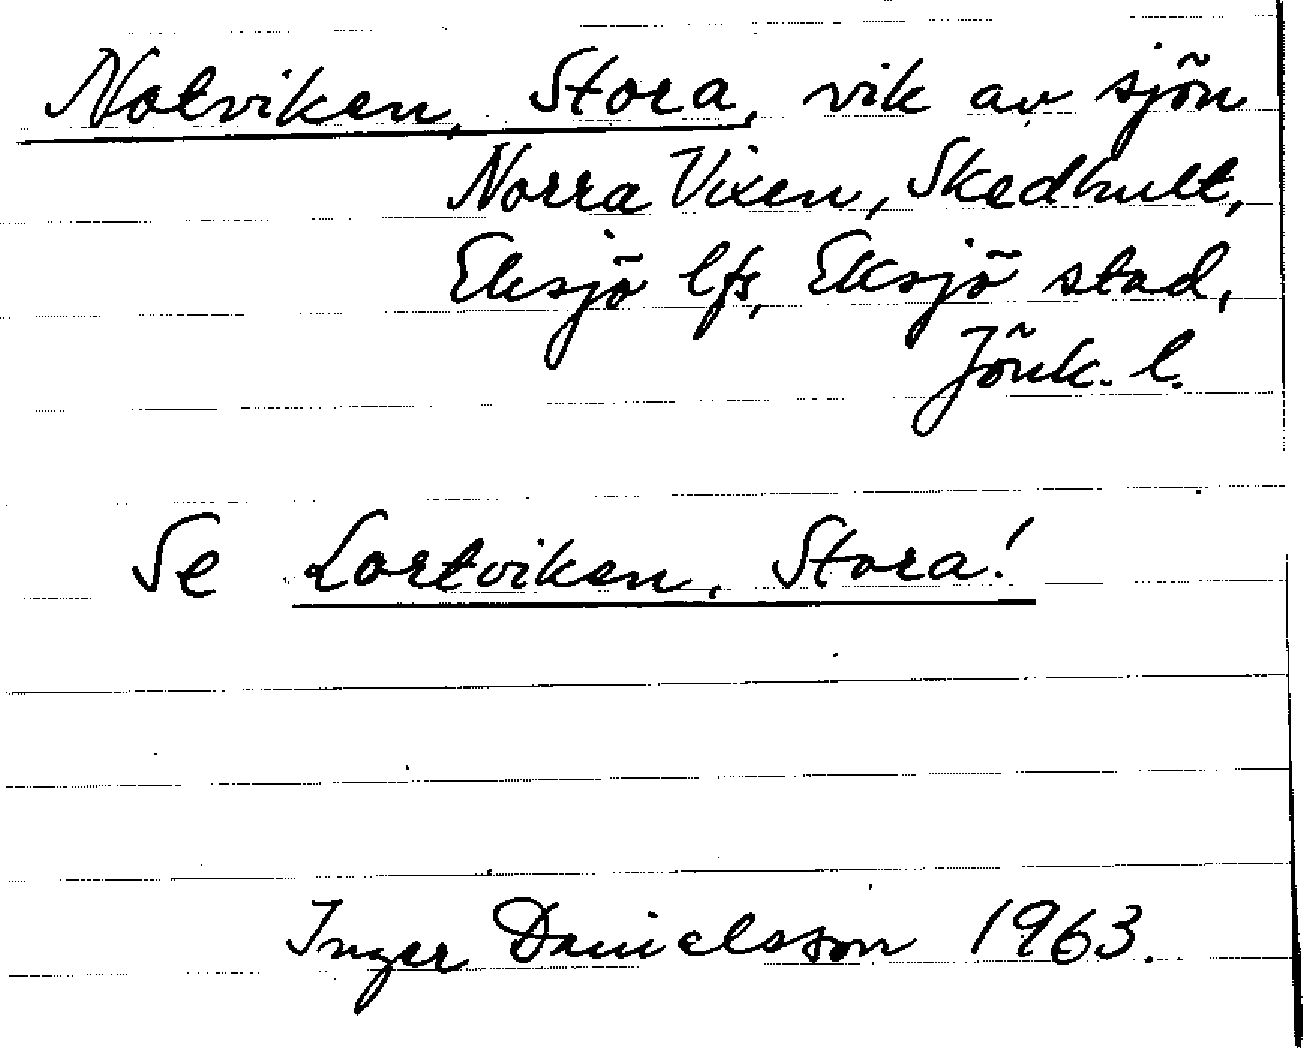 Notviken, Stora, vik av sjön
Norra Vixen, Skedhult,
Eksjö lfs, Eksjö stad,
Jönk. l.
Se Lortviken, Stora!
Inger Danielsson 1963.